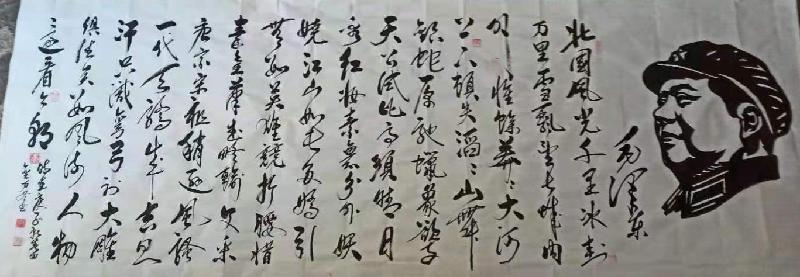 毛泽东
北國風光千里冰封
万里雪飘望长城内
外惟餘莽莽大河
上下顿失滔滔山舞
银蛇原驰蜡象欲与
天公试比高须晴日
看红妆素裹分外妖
娆江山如此多娇引
無数英雄競折腰惜
秦皇漢武略輸文采
唐宗宋祖稍逊風骚
一代天骄成吉思
汗只识弯弓射大雕
俱往矣数風流人物
还看今朝